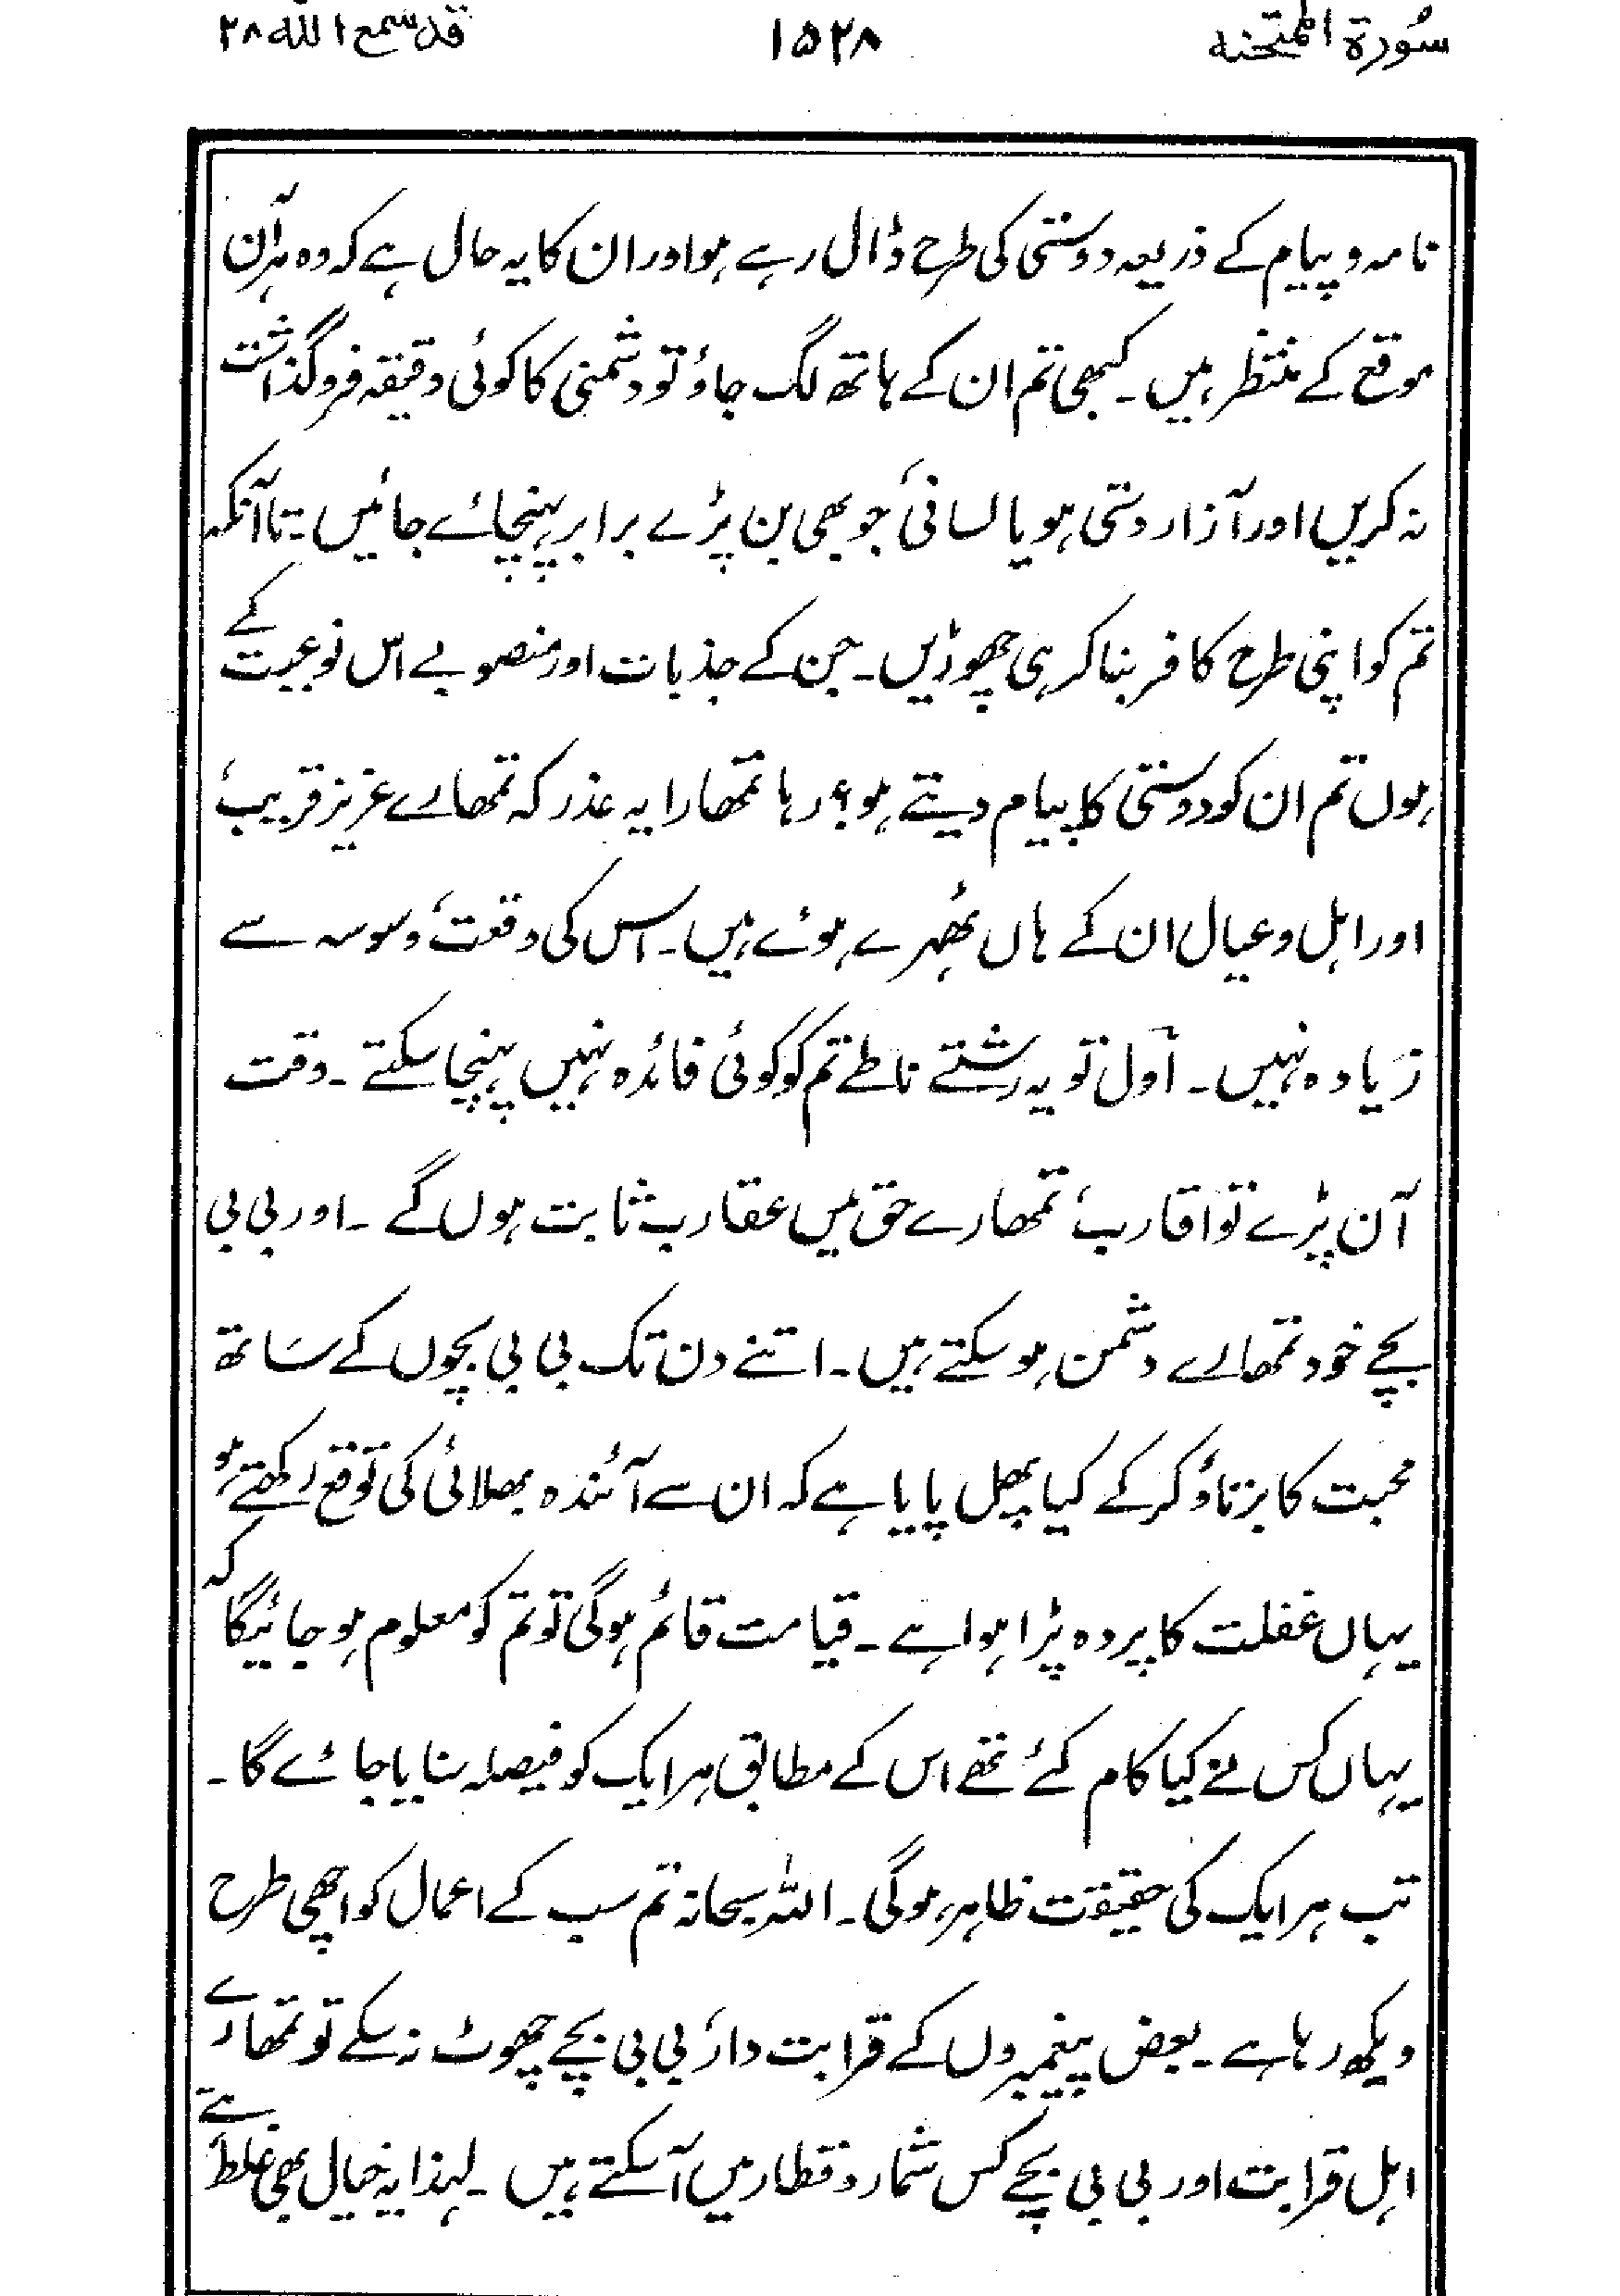 سُورۃ الممتحنہ ۱۵۲۸ قد سمع اللہ ۲۸
نامہ و پیام کے ذریعہ دوستی کی طرح ڈال رہے ہو اور ان کا یہ حال ہے کہ وہ ہر آن
موقع کے منتظر ہیں۔ کبھی تم ان کے ہاتھ لگ جاؤ تو دشمنی کا کوئی دقیقہ فروگذاشت
نہ کریں اور آزار دستی ہو یا لسانی، جو بھی بن پڑے برابر پہنچائے جائیں۔ تا آنکہ
تم کو اپنی طرح کافر بنا کر ہی چھوڑیں۔ جن کے جذبات اور منصوبے اس نوعیت کے
ہوں تم ان کو دوستی کا پیام دیتے ہو؟ رہا تمھارا یہ عذر کہ تمھارے عزیز قریب،
اور اہل و عیال ان کے ہاں ٹھہرے ہوئے ہیں۔ اس کی وقعت، وسوسہ سے
زیادہ نہیں۔ اَوّل تو یہ رشتے ناطے تم کو کوئی فائدہ نہیں پہنچا سکتے۔ وقت
آن پڑے تو اقارب، تمھارے حق میں عقارب ثابت ہوں گے۔ اور بی بی
بچے خود تمھارے دشمن ہو سکتے ہیں۔ اتنے دن تک بی بی بچوں کے سَاتھ
محبت کا برتاؤ کر کے کیا پھل پایا ہے کہ ان سے آئندہ بھلائی کی توقع رکھتے ہو
یہاں غفلت کا پردہ پڑا ہوا ہے۔ قیامت قائم ہوگی تو تم کو معلوم ہو جائیگا کہ
یہاں کس نے کیا کام کئے تھے اس کے مطابق ہر ایک کو فیصلہ سنایا جائے گا۔
تب ہر ایک کی حقیقت ظاہر ہوگی۔ اللہ سبحانہ تم سب کے اعمال کو اچھی طرح
دیکھ رہا ہے۔ بعض پیغمبروں کے قرابت دار، بی بی بچے چھوٹ نہ سکے تو تمھارے
اہل قرابت اور بی بی بچے کس شمار و قطار میں آ سکتے ہیں۔ لہذا یہ خیال بھی غلط ہے